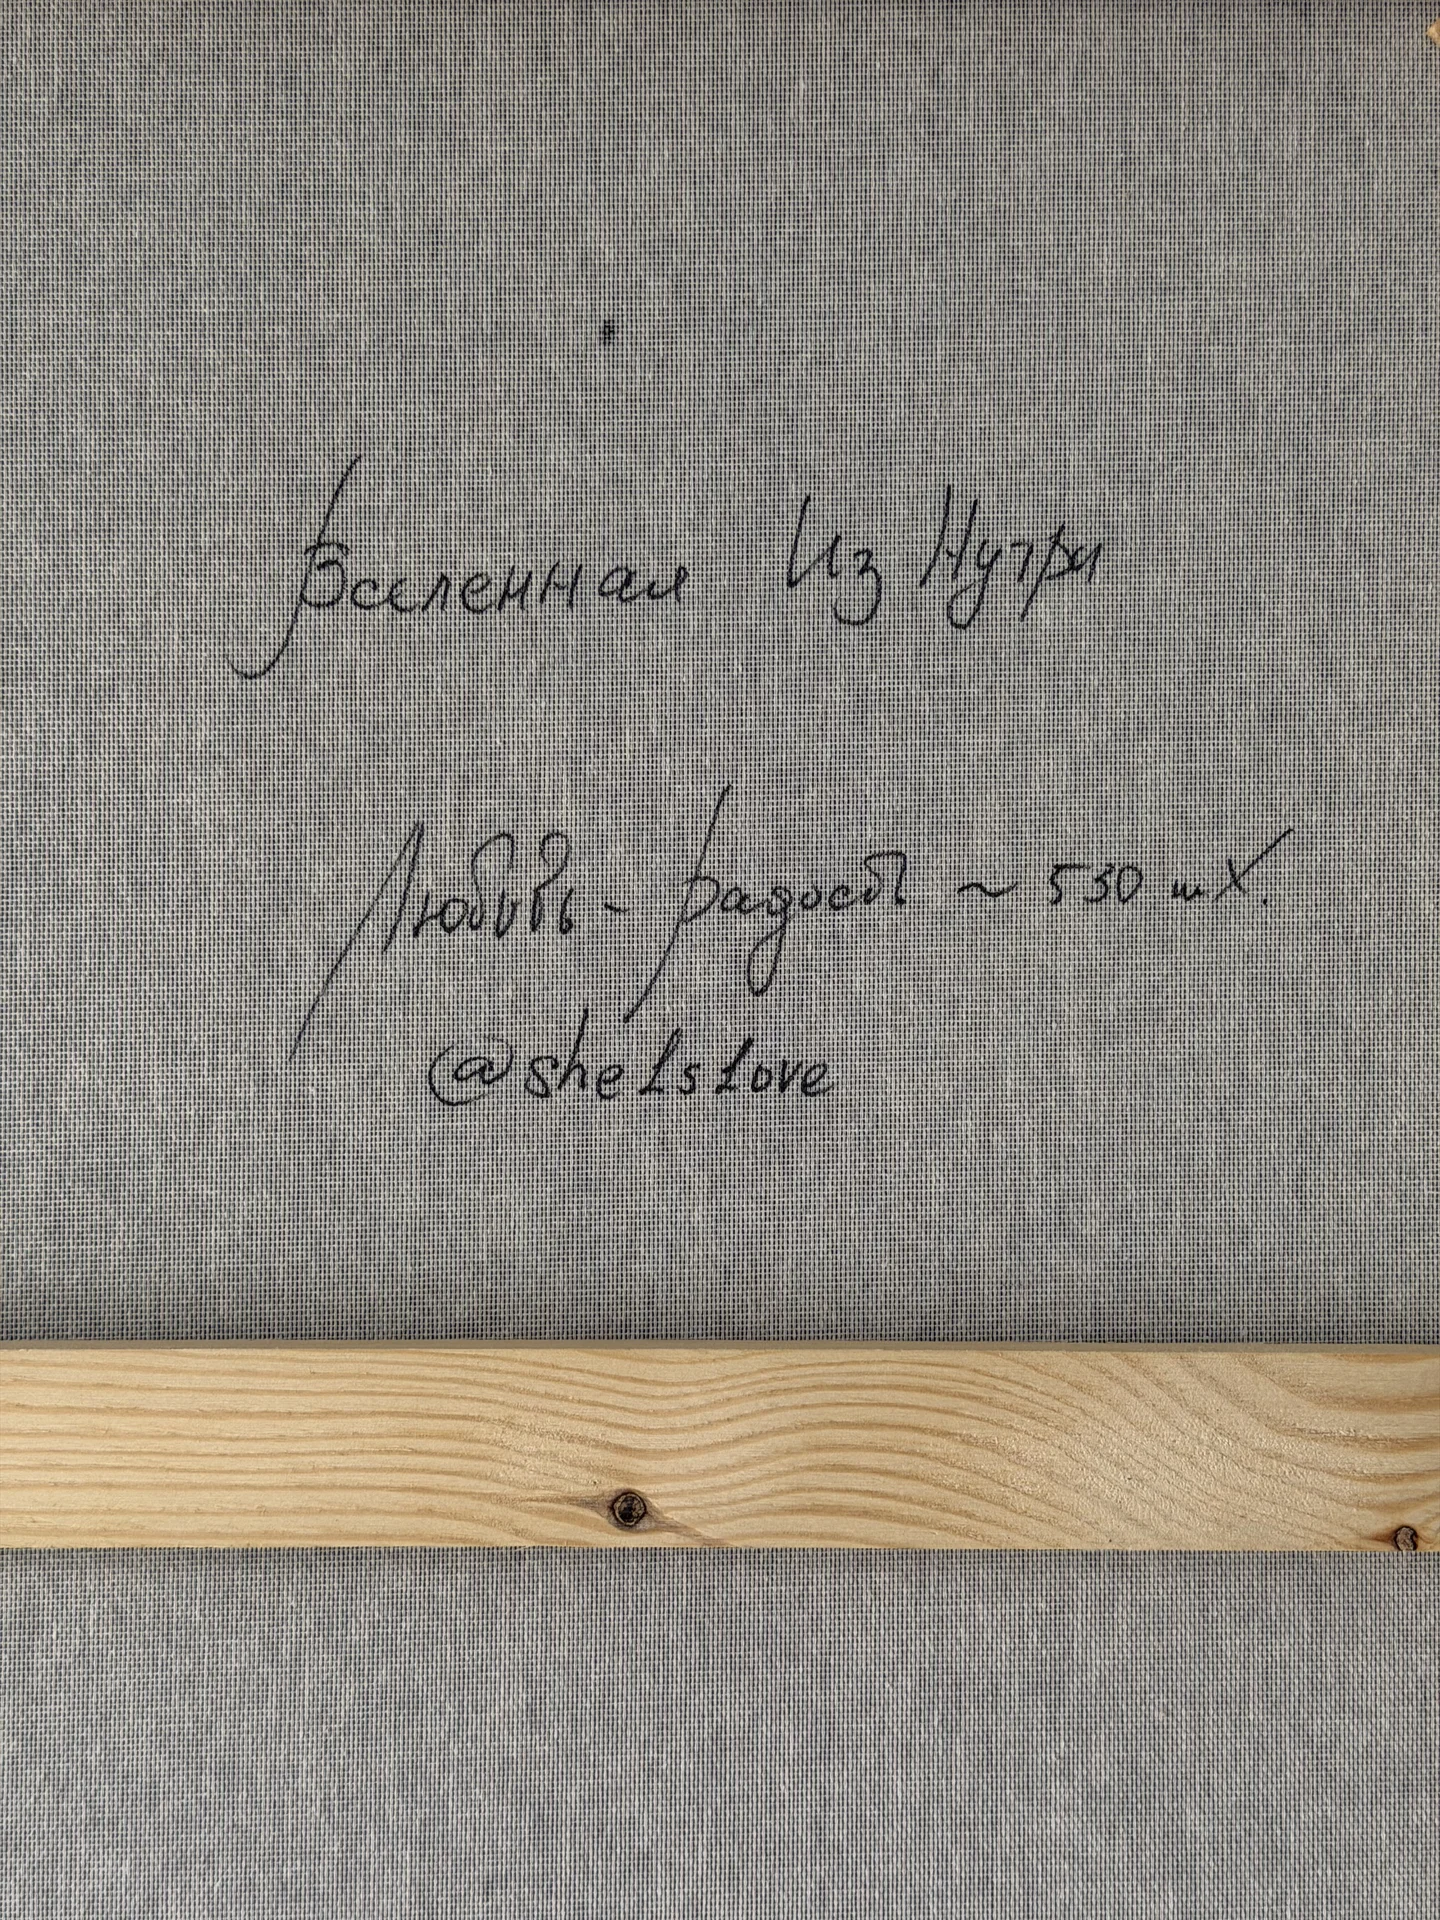 Вселенная Из Нутри
Любовь - радость ~ 530 шХ.
@sheIsLove